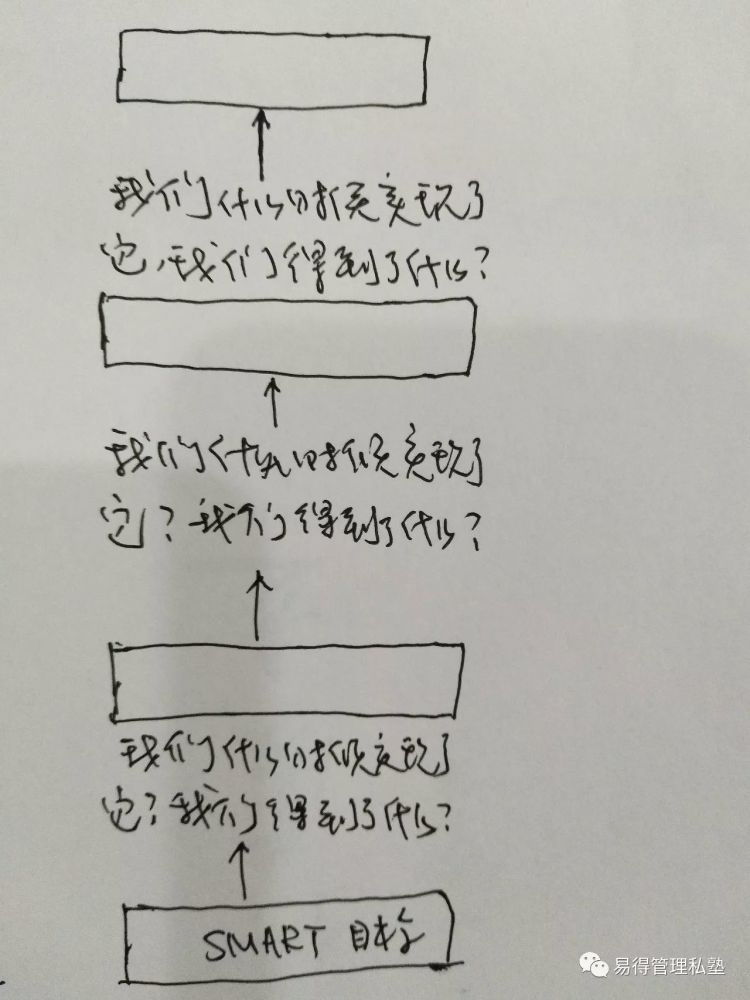 我们什么时候实现了
它,我们得到了什么?
我们什么时候实现了
它?我们得到了什么?
我们什么时候实现了
它?我们得到了什么?
SMART 目标
易得管理私塾